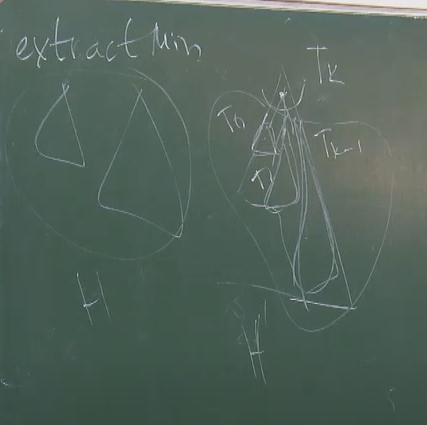 extractMin
T_k
T_0
T_{k-1}
T_1
H
H'